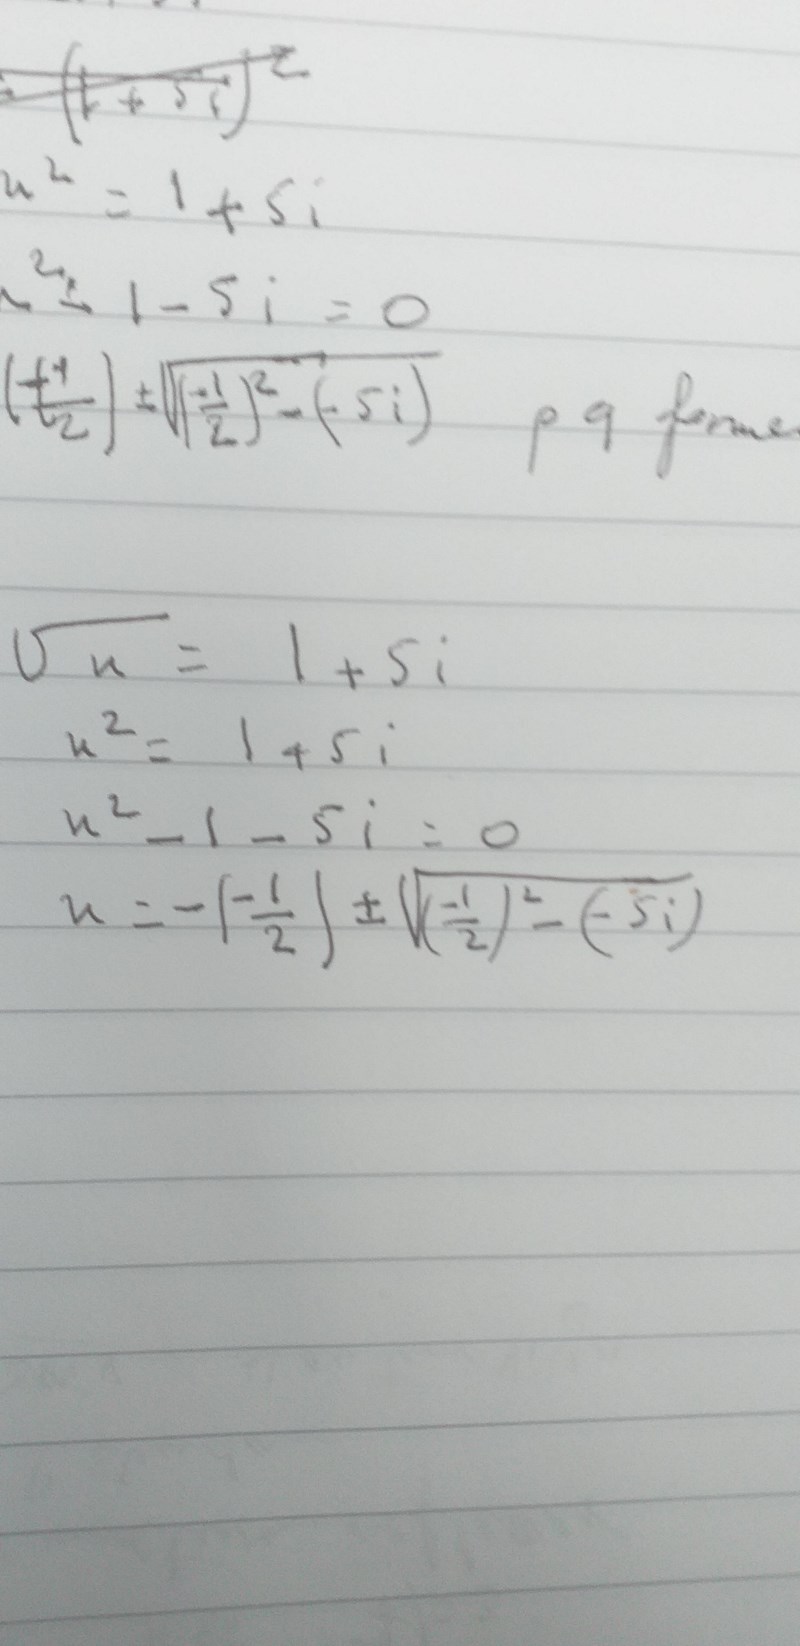 (1 + 5i)²
x² = 1 + 5i
x² - 1 - 5i = 0
(+1/2) ± √((-1/2)² - (-5i)) pq forme
√x = 1 + 5i
x² = 1 + 5i
x² - 1 - 5i = 0
x = -(-1/2) ± √((-1/2)² - (-5i))